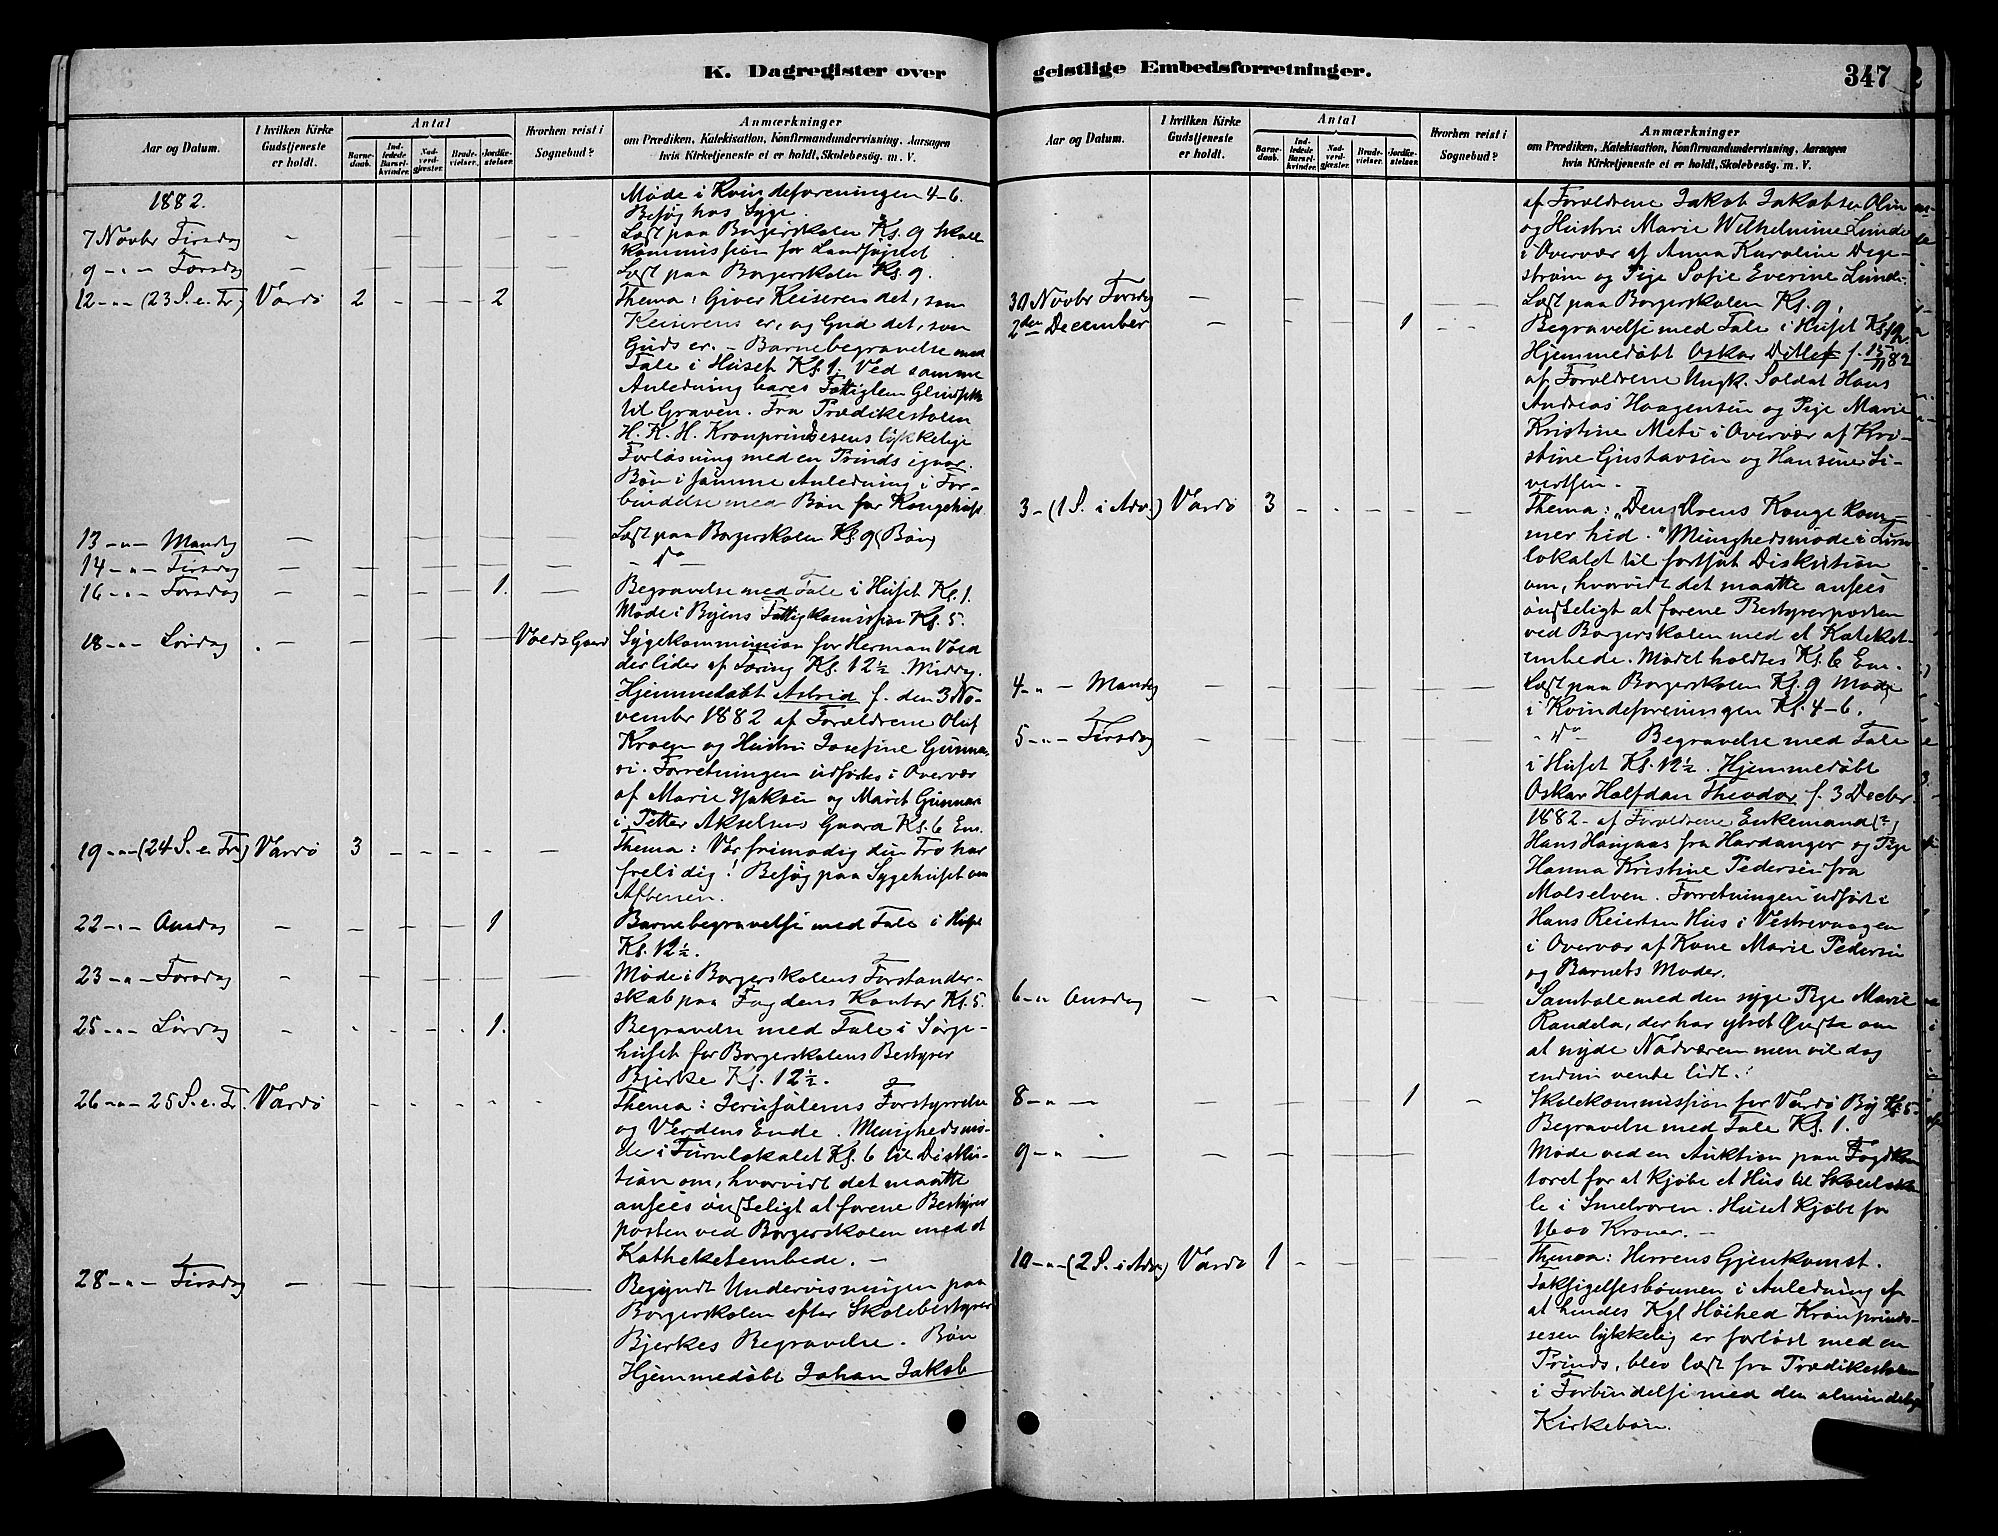 K. Dagregister over
geistlige Embedsforretninger.
347
Aar og Datum.
I hvilken Kirke Gudstjeneste er holdt.
Antal
Barnedaab.
Indledede Barselkvinder.
Nadverdgjæster.
Brudevielser.
Jordfæstelser.
Hvorhen reist i Sognebud?
Anmærkninger
om Prædiken, Katekisation, Konfirmandundervisning, Aarsagen
hvis Kirketjeneste ei er holdt, Skolebesøg, m. V.
1882.
Møde i Kvindeforeningen 4-6.
Besøg hos Syge.
7 Novbr Tirsdag - Læst paa Borgerskolen Kl. 9 Skole
kommission for Landsognet
9 -"- Torsdag - Læst paa Borgerskolen Kl. 9.
12 -"- (23 S. e. Tr.) Vardø 2 - - - 2 Thema: Giver Keiseren det, som
Keiserens er, og Gud det, som
Guds er. - Barnebegravelse med
Tale i Huset Kl. 1. Ved samme
Anledning bares Fattiglem
til Graven. Fra Prædikestolen
H. K. H. Kronprindsesens lykkelige
Forløsning med en Prinds igaar.
Bøn i samme Anledning i For-
bindelse med Bøn for Kongehuset
13 -"- Mandag - Læst paa Borgerskolen Kl. 9 (Bøn)
14 -"- Tirsdag - - do -
16 -"- Torsdag - - - - - 1. - Begravelse med Tale i Huset Kl. 1.
Møde i Byens Fattigkomission Kl. 5.
18 -"- Lørdag - Voeds Gaard Sygekommunion for Herman Voed
der lider af Tæring Kl. 12½ Middag.
Hjemmedøbt Astrid f. den 3 No-
vember 1882 af Forældrene Oluf
Kroen og Hustru Josefine Gunna-
ri. Forretningen udførtes i Overvær
af Marie Isaksen og Marit Gunnari
i Petter Akselsens Gaard Kl. 6 Em.
19 -"- (24 S. e. Tr.) Vardø 3 - - - - - Thema: Vær frimodig din Tro har
frelst dig! Besøg paa Sygehuset om
Aftenen.
22 -"- Onsdag - - - - - 1 Barnebegravelse med Tale i Huset
Kl. 12½.
23 -"- Torsdag - Møde i Borgerskolens Forstander-
skab paa Fogdens Kontor Kl. 5.
25 -"- Lørdag - - - - - 1. Begravelse med Tale i Sørge-
huset for Borgerskolens Bestyrer
Bjerke Kl. 12½.
26 -"- 25 S. e. Tr. Vardø - - - - - Thema: Jerusalems Forstyrrelse
og Verdens Ende. Menighedsmø-
de i Turnlokalet Kl. 6 til Disku-
sion om, hvorvidt det maatte
ansees ønskeligt at forene Bestyrer
posten ved Borgerskolen med et
Kathekетembede. -
28 -"- Tirsdag - Begyndt Undervisningen paa
Borgerskolen efter Skolebestyrer
Bjerkes Begravelse. Bøn
Hjemmedøbt Johan Jakob
Aar og Datum.
I hvilken Kirke Gudstjeneste er holdt.
Antal
Barnedaab.
Indledede Barselkvinder.
Nadverdgjæster.
Brudevielser.
Jordfæstelser.
Hvorhen reist i Sognebud?
Anmærkninger
om Prædiken, Katekisation, Konfirmandundervisning, Aarsagen
hvis Kirketjeneste ei er holdt, Skolebesøg, m. V.
af Forældrene Jakob Jakobsen
og Hustru Marie Wilhelmine Lunde
i Overvær af Anna Karoline Dege-
strøm og Pige Sofie Everine Lunde.
30 Novbr Torsdag - Læst paa Borgerskolen Kl. 9.
2den December - - - - - 1 - Begravelse med Tale i Huset Kl. 12.
Hjemmedøbt Oskar Ditlef f. 15/11 82
af Forældrene Ungk. Soldat Hans
Andreas Haagensen og Pige Marie
Kristine Meti i Overvær af Kri-
stine Gustavsen og Hansine Si-
vertsen. -
3 - (1 S. i Adv.) Vardø 3 - - - - - Thema: "Den Ærens Konge kom-
mer hid." Menighedsmøde i Turn
lokalet til fortsat Diskusion
om, hvorvidt det maatte ansees
ønskeligt at forene Bestyrerposten
ved Borgerskolen med et Kateket-
embede. Mødet holdtes Kl. 6 Em.
4 -"- Mandag - Læst paa Borgerskolen Kl. 9 Møde
i Kvindeforeningen Kl. 4-6.
5 -"- Tirsdag - - do - Begravelse med Tale
i Huset Kl. 12½. Hjemmedøbt
Oskar Halfdan Theodor f. 3 Decbr
1882 - af Forældrene Enkemand (?)
Hans Haugaas fra Hardanger og Pige
Hanna Kristine Pedersen fra
Molselven. Forretningen udført i
Hans Reiersen Hus i Vestrevaagen
i Overvær af Kone Marie Pedersen
og Barnets Moder.
6 -"- Onsdag - Samtale med den syge Pige Marie
Randela, der har ytret Ønske om
at nyde Nadveren men vil dog
endnu vente lidt.
8 -"- - 1 - Skolekommission for Vardø By Kl. 5
Begravelse med Tale Kl. 1.
9 -"- - Møde ved en Auktion paa Fogdkon
toret for at kjøbe et Hus til Skoleloka
le i Smelroren. Huset kjøbt for
1600 Kroner. -
10 -"- (2 S. i Adv.) Vardø 1 - - Thema: Herrens Gjenkomst.
Taksigelsesbønnen i Anledning af
at hendes Kgl Høihed Kronprinds-
sesen lykkelig er forløst med en
Prinds, blev læst fra Prædikestolen
i Forbindelse med den almindelige
Kirkebøn.